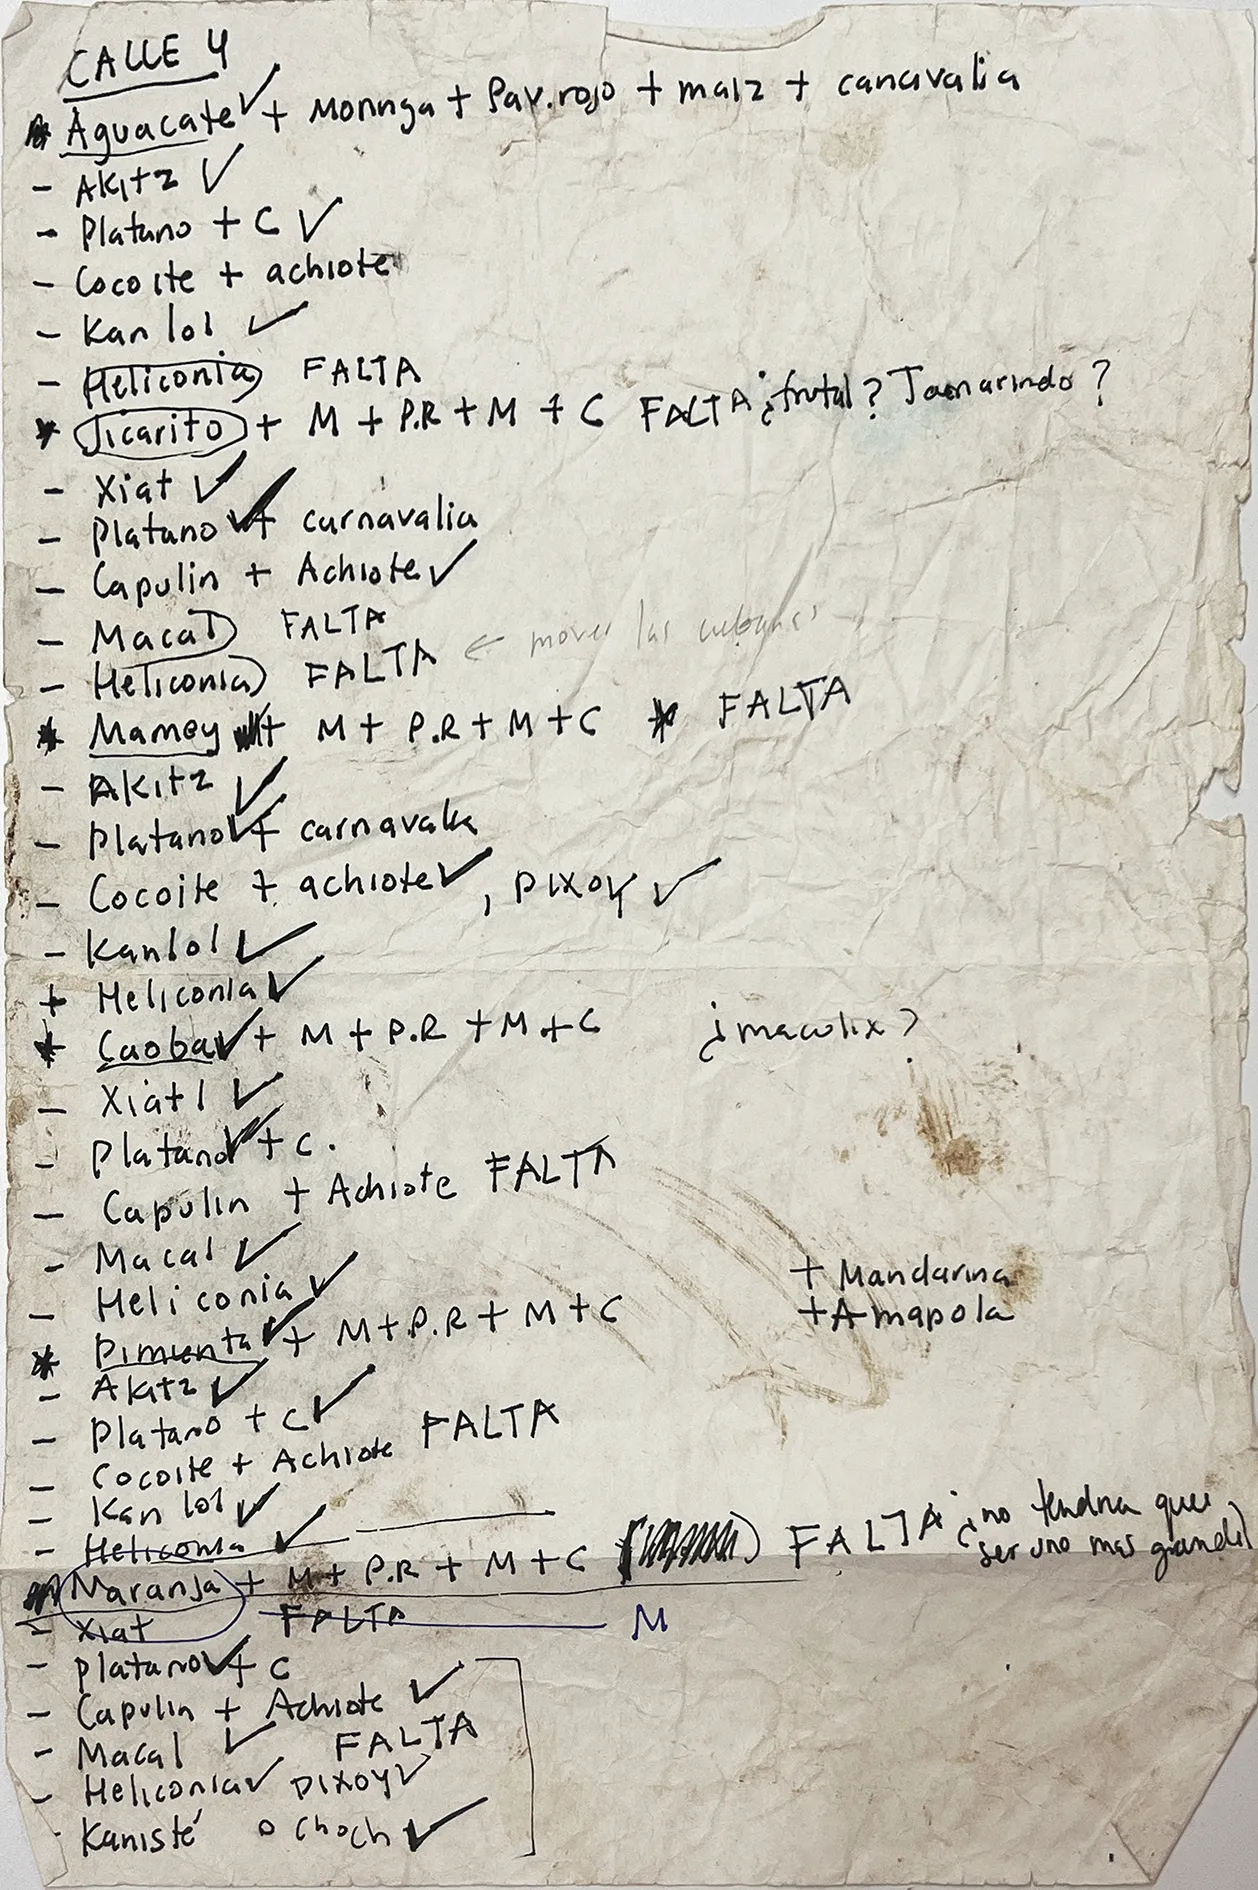 CALLE 4
* Aguacate ✓ + Moringa + Pav.rojo + maiz + canavalia
- Akitz ✓
- Platano + C ✓
- Cocoite + achiote
- Kan lol ✓
- Heliconia FALTA
* Jicarito + M + P.R + M + C FALTA ¿frutal? Tamarindo?
- Xiat ✓
- Platano ✓ + carnavalia
- Capulin + Achiote ✓
- Macal FALTA
- Heliconia FALTA ← mover las
* Mamey + M + P.R + M + C * FALTA
- Akitz ✓
- Platano ✓ + carnavalia
- Cocoite + achiote ✓, pixoy ✓
- Kanlol ✓
+ Heliconia ✓
* Caoba ✓ + M + P.R + M + C ¿maculix?
- Xiatl ✓
- Platano ✓ + C.
- Capulin + Achiote FALTA
- Macal ✓
- Heliconia ✓
+ Mandarina
+ Amapola
* Pimienta ✓ + M + P.R + M + C
- Akitz ✓
- Platano + C ✓
- Cocoite + Achiote FALTA
- Kan lol ✓
- Heliconia ✓
Naranja + M + P.R + M + C FALTA ¿no tendria que ser uno mas grande?
- Xiat FALTA M
- Platano ✓ + C
- Capulin + Achiote ✓
- Macal ✓ FALTA
- Heliconia ✓ pixoy ✓
- Kanisté o choch ✓